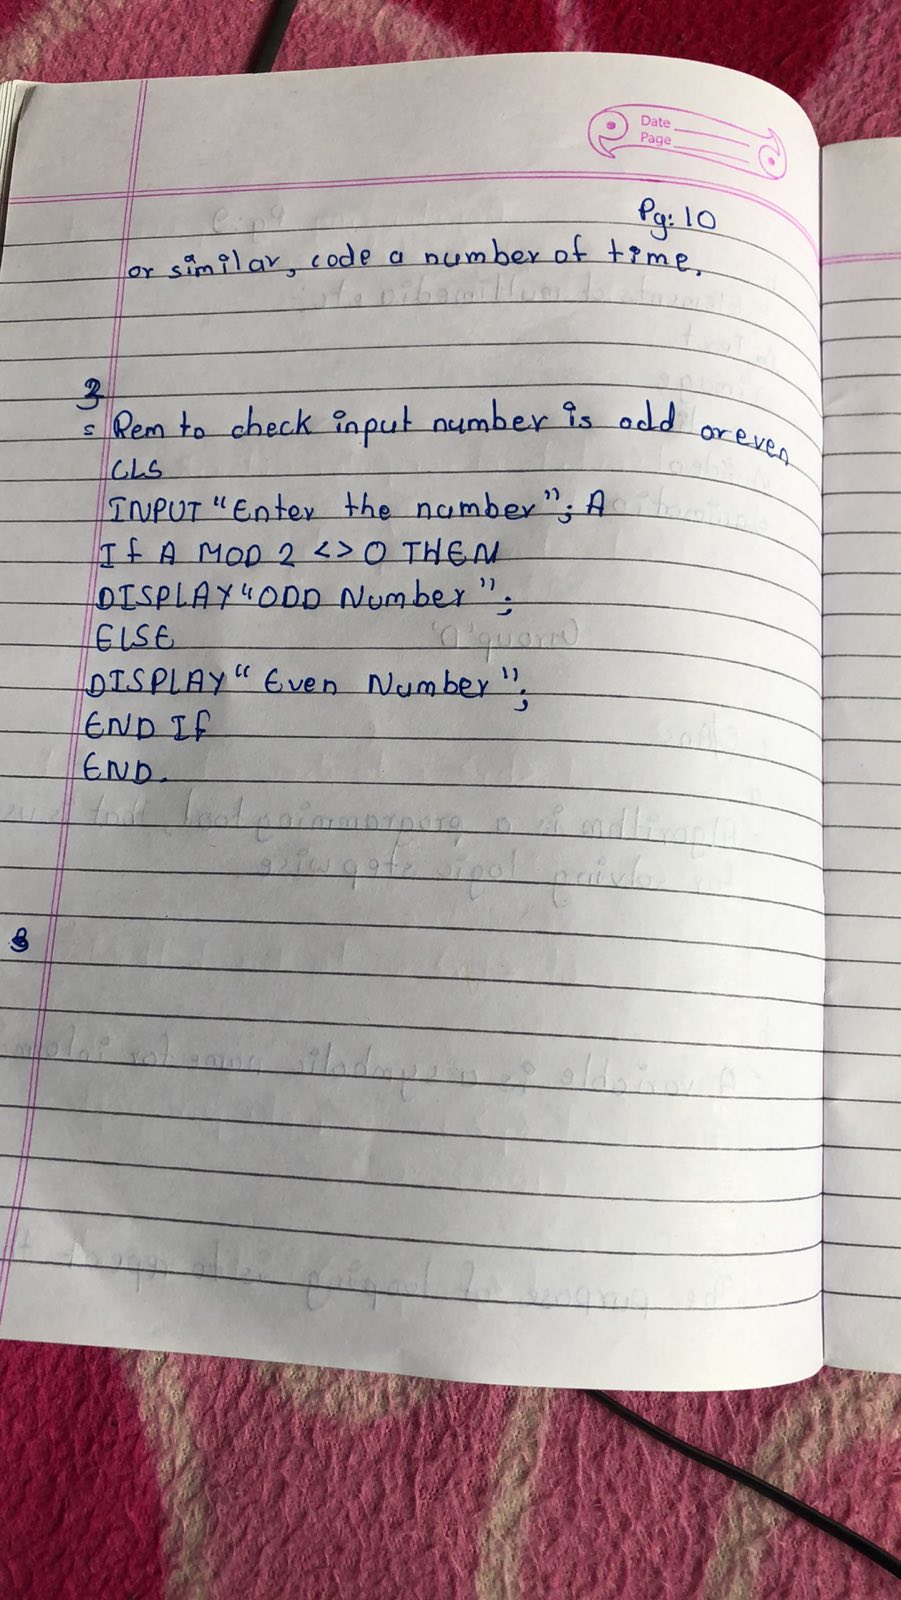 Date
Page
Pg: 10
or similar, code a number of time.
3
= Rem to check input number is odd or even
CLS
INPUT "Enter the number"; A
If A MOD 2 <> 0 THEN
DISPLAY "ODD Number";
ELSE
DISPLAY "Even Number";
END If
END.